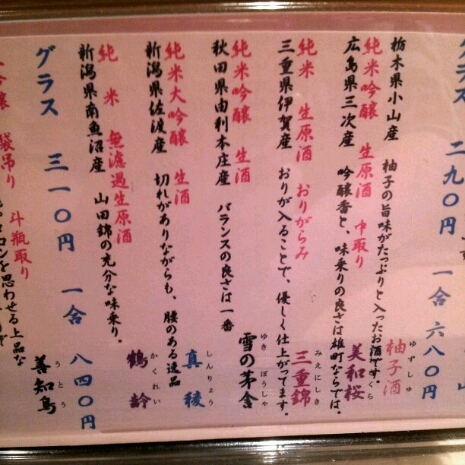 グラス 二九〇円 一合 六八〇円
栃木県小山産 柚子の旨味がたっぷりと入ったお酒です。
柚子酒
ゆずしゅ
純米吟醸 生原酒 中取り
広島県三次産 吟醸香と、味乗りの良さは雄町ならでは。
美和桜
純米 生原酒 おりがらみ
三重県伊賀産 おりが入ることで、優しく仕上がってます。
三重錦
みえにしき
純米吟醸 生酒
秋田県由利本庄産 バランスの良さは一番
雪の茅舎
ゆき ぼうしゃ
純米大吟醸 生酒
新潟県佐渡産 切れがありながらも、腰のある逸品
真稜
しんりょう
純米 無濾過生原酒
新潟県南魚沼産 山田錦の充分な味乗り。
鶴齢
かくれい
グラス 三一〇円 一合 八四〇円
大吟醸 袋吊り 斗瓶取り
を思わせる上品な
善知鳥
うとう